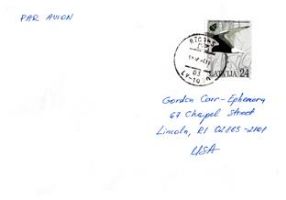 PAR AVION
LATVIJA 24
Gordon Carr-Ephemory
67 Chapel Street
Lincoln, RI 02865-2101
USA